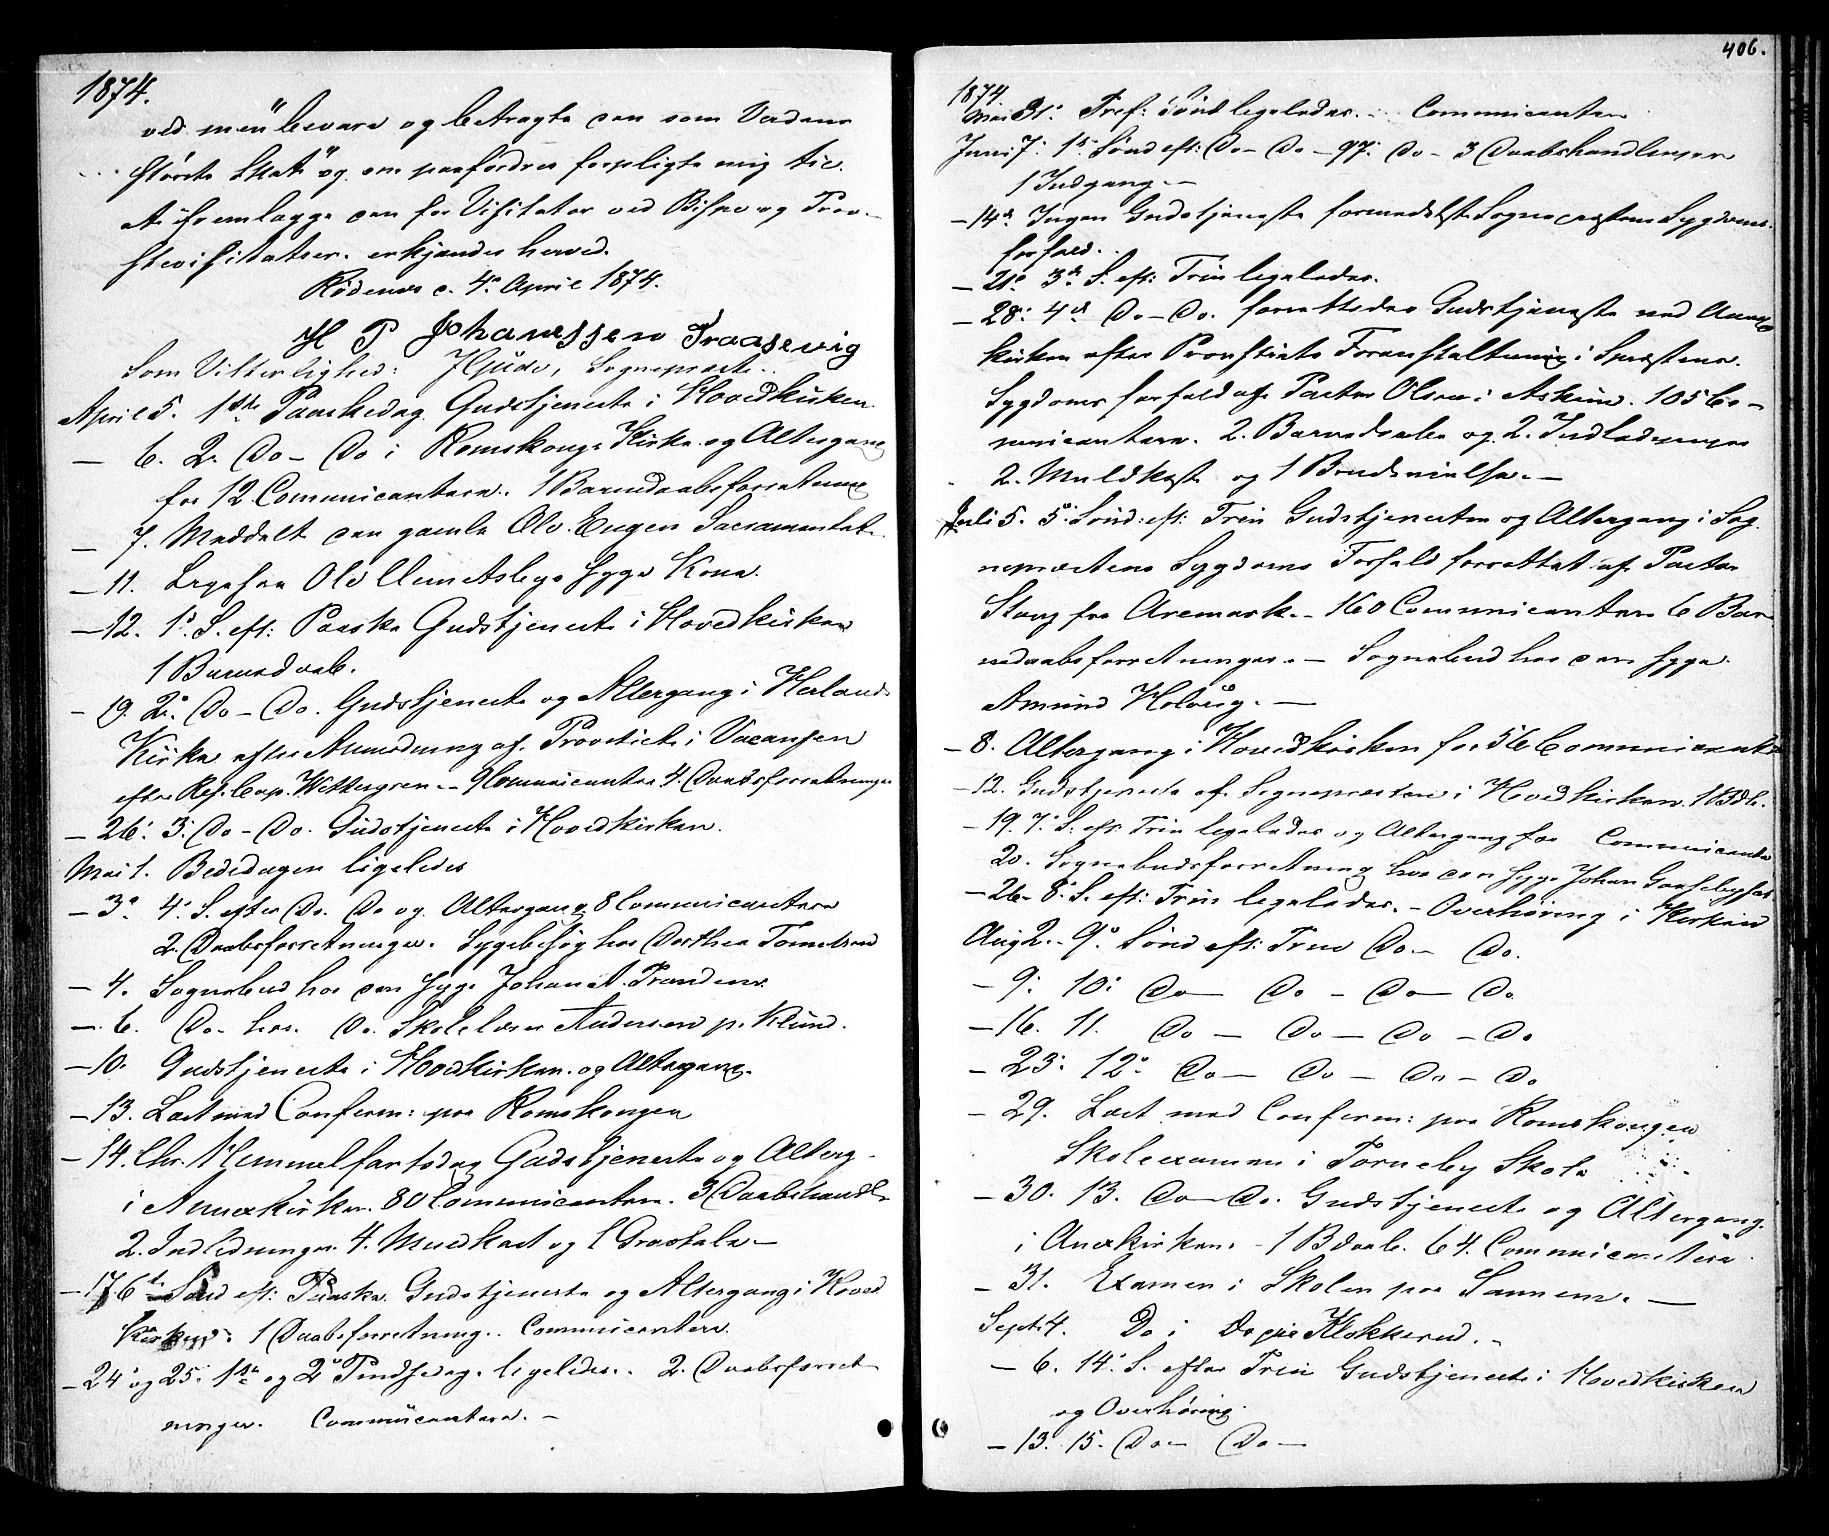 1874.
ved men bevare og betragte den som Verdens
største Skat" og om paafordres forpligte mig til
At fremlægge den for Visitator ved Bispe og Prov-
stevisitatser. erkjendes herved.
Rødenæs d. 4 April 1874.
H P Johanessen Traasevig
Som Vitterlighed: Sognepræst.
April 5. 1ste Paaskedag Gudstjeneste i Hovedkirken
— 6. 2. Do - Do i Romskougs Kirke og Altergang
for 12 Communicantere. 1 Barnedaabsforretning
— 7. Meddelt den gamle Ole Eugen Sacramentet.
— 11. Ligesaa Ole syge Kone.
— 12. 1. S. eft: Paaske Gudstjeneste i Hovedkirken
1 Barnedaab.
— 19. 2. Do - Do. Gudstjeneste og Altergang i Herlands
Kirke efter Anmodning af Provstiet i Vacansen
efter Res. Cap. Wettergren. - 9 Communicanter 4. Daabsforretninger
— 26. 3. Do - Do. Gudstjeneste i Hovedkirken.
Mai 1. Bededagen ligeledes
— 3. 4. S. efter Do. Do og Altergang 8 Communicantere
2. Daabsforretninger. Sygebesøg hos Dorthea
— 4. Sognebud hos den syge Johan A.
— 6. Do- hos Do. Skolelærer Andersen p. Klund.
— 10. Gudstjeneste i Hovedkirken. og Altergang.
— 13. Læst med Conferm: paa Romskougen
— 14. Chr. Himmelfartsdag Gudstjeneste og Alterg-
i Annexkirken. 80 Communicanter. 3 Daabshandl-
2. Indledninger. 4. Muldkast og 1 Gravtale. —
— 17. 6te Sønd eft: Paaske. Gudstjeneste og Altergang i Hoved
Kirken. 1 Daabsforretning. Communicantere.
— 24 og 25. 1ste og 2 Pindsedag. ligeledes. 2. Daabsforret
ninger. Communicantere. —
406.
1874
Mai 31. Tref: Sønd ligeledes. - Communicanter
Juni 7. 1s. Sønd eft: Do - Do - 97. Do - 3 Daabshandlinger
1 Indgang. —
— 14d. Ingen Gudstjeneste formedelst Sognepræstens Sygdoms-
forfald.
— 21. 3d. S. eft: Trin ligeledes.
— 28. 4d Do - Do. forrettedes Gudstjeneste ved Annex
kirken efter Provstiets Foranstaltning i Spræstens
Sygdoms forfald af Pastor Olsen i Askim. 105 Co-
municantere. 2. Barnedaabe og 2. Indledninger
2. Muldkast og 1 Brudevielse. —
Juli 5. 5. Sønd: eft: Trin Gudstjeneste og Altergang i Sog
nepræstens Sygdoms Forfald forrettet af Pastor
Stang fra Aremark. - 160 Communicantere 6 Bar-
nedaabsforretninger. — Sognebud hos den syge
Amund Holvig. —
— 8. Altergang i Hovedkirken for 56 Communicant
— 12. Gudstjeneste af Sognepræsten i Hovedkirken. 1 Bdb.
— 19. 7. S. eft Trin ligeledes og Altergang for Communicanter
20. Sognebudsforretning hos den syge Johan
— 26. 8. S. eft: Trin ligeledes. - Overhøring i Kirken
Aug 2. - 9. Sønd eft: Trin Do - Do.
— 9. 10. Do — Do — Do — Do
— 16. 11. Do — Do — Do — Do
— 23. 12. Do — Do — Do — Do
— 29. Læst med Conferm: paa Romskougen
Skoleexamen i Torneby Skole
— 30. 13. Do — Do. Gudstjeneste og Altergang.
i Anexkirken. - 1 Bdaab. 64. Communicantere.
— 31. Examen i Skolen paa Sannem. —
Septr 4. Do i Do paa Klokkerud. -
— 6. 14. S. efter Trin Gudstjeneste i Hovedkirken
og Overhøring.
— 13. 15. Do — Do —